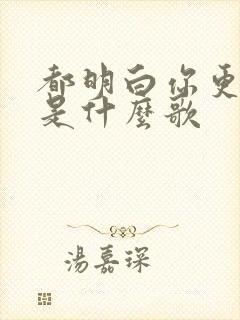 都明白你更
是什麼歌
湯嘉琛